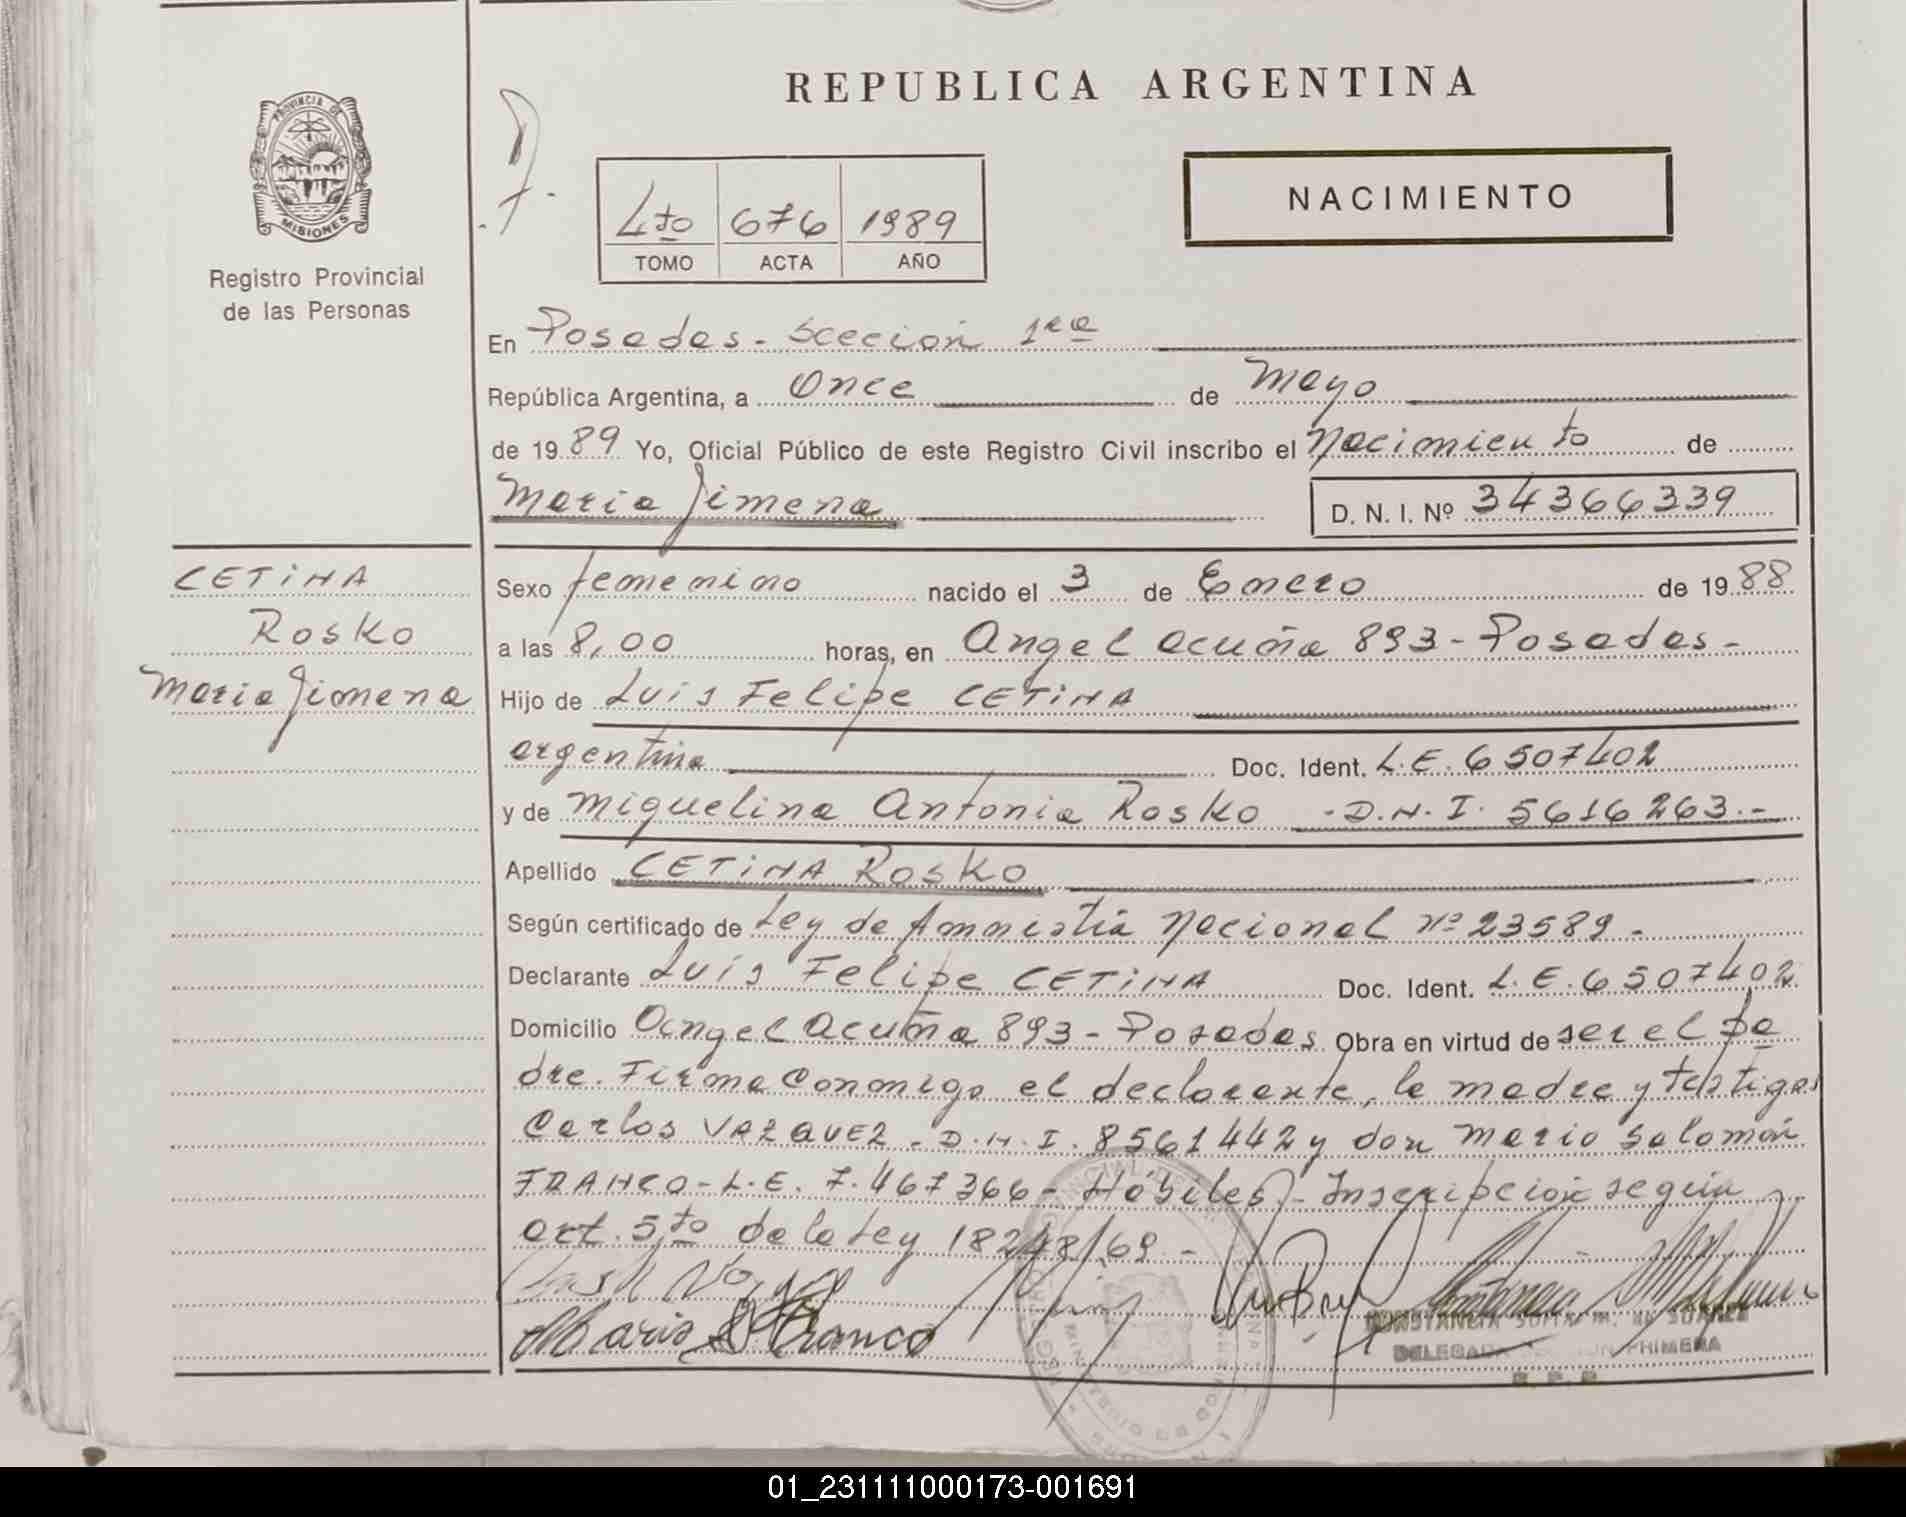 REPUBLICA ARGENTINA
PROVINCIA DE
MISIONES
Registro Provincial
de las Personas
4to 676 1989
TOMO ACTA AÑO
NACIMIENTO
En Posadas - Sección 1ra
República Argentina, a Once de Mayo
de 1989 Yo, Oficial Público de este Registro Civil inscribo el Nacimiento de
Maria Jimena D. N. I. Nº 34366339
CETINA
Rosko
Maria Jimena
Sexo femenino nacido el 3 de Enero de 1988
a las 8,00 horas, en Angel Acuña 893 - Posadas -
Hijo de Luis Felipe CETINA
argentina Doc. Ident. L.E. 6507402
y de Miguelina Antonia Rosko - D.N.I. 5616263.-
Apellido CETINA Rosko
Según certificado de Ley de Amnistia Nacional Nº 23589 -
Declarante Luis Felipe CETINA Doc. Ident. L.E. 6507402
Domicilio Angel Acuña 893 - Posadas Obra en virtud de ser el pa
dre. Firma conmigo el declarante, la madre y testigos
Carlos VAZQUEZ - D.N.I. 8561442 y don Mario Salomón
FRANCO - L.E. 7.467366 - Hábiles - Inscripción según
art. 5to de la Ley 18248/69 -
Mario S Franco
CONSTANCIA DE SUAREZ
DELEGADA SECCION PRIMERA
R. P. P.
01_231111000173-001691